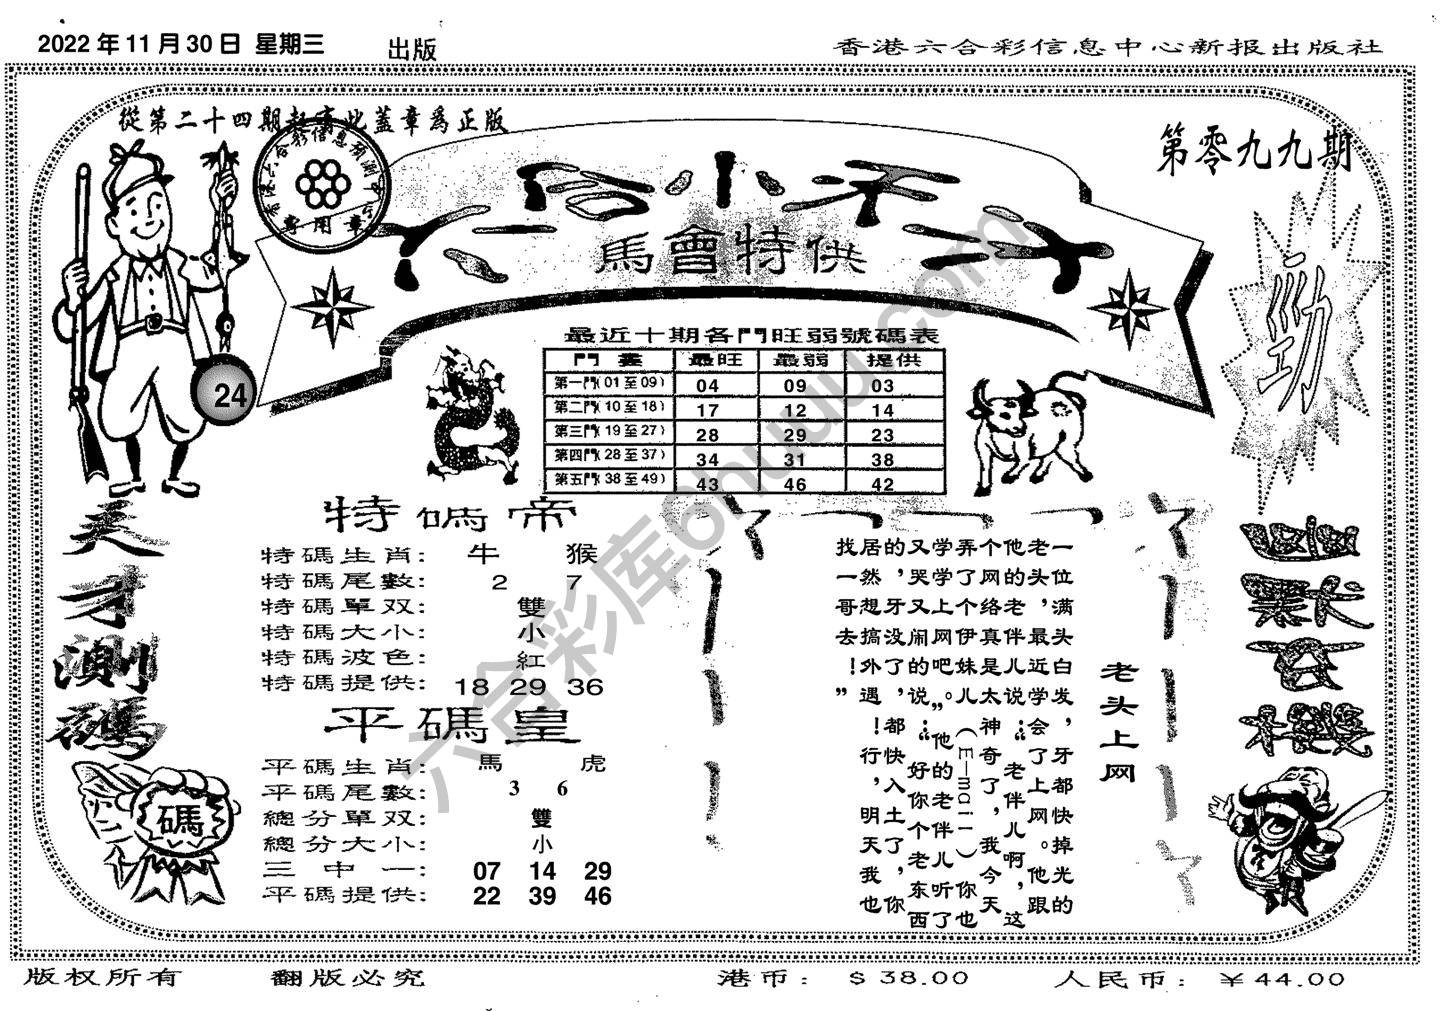 2022 年 11 月 30 日 星期三 出版
香港六合彩信息中心新报出版社
從第二十四期起有此蓋章爲正版
第零九九期
香港六合彩信息預測中心
專用章
六合小天才
馬會特供
勁
24
最近十期各門旺弱號碼表
門 最旺 最弱 提供
第一門(01至09) 04 09 03
第二門(10至18) 17 12 14
第三門(19至27) 28 29 23
第四門(28至37) 34 31 38
第五門(38至49) 43 46 42
天才測碼
碼
特碼帝
特碼生肖: 牛 猴
特碼尾數: 2 7
特碼單双: 雙
特碼大小: 小
特碼波色: 紅
特碼提供: 18 29 36
平碼皇
平碼生肖: 馬 虎
平碼尾數: 3 6
總分單双: 雙
總分大小: 小
三中一: 07 14 29
平碼提供: 22 39 46
老头上网
一位满头白发，牙都快掉光的
老头，最近学会了上网。他跟
他的老伴儿说：“老伴儿啊，这
个网络真是太神奇了，我今天
弄了个伊妹儿（E—mail）你也
学学上网吧。”他的老伴儿听了
又哭又闹的说：“好你个老东西
的，牙没了，都快入土了，你
居然想搞外遇！行，明天我也
找一哥去！”
六合彩库6huuu.com
版权所有 翻版必究 港币： $ 38.00 人民币： ￥44.00